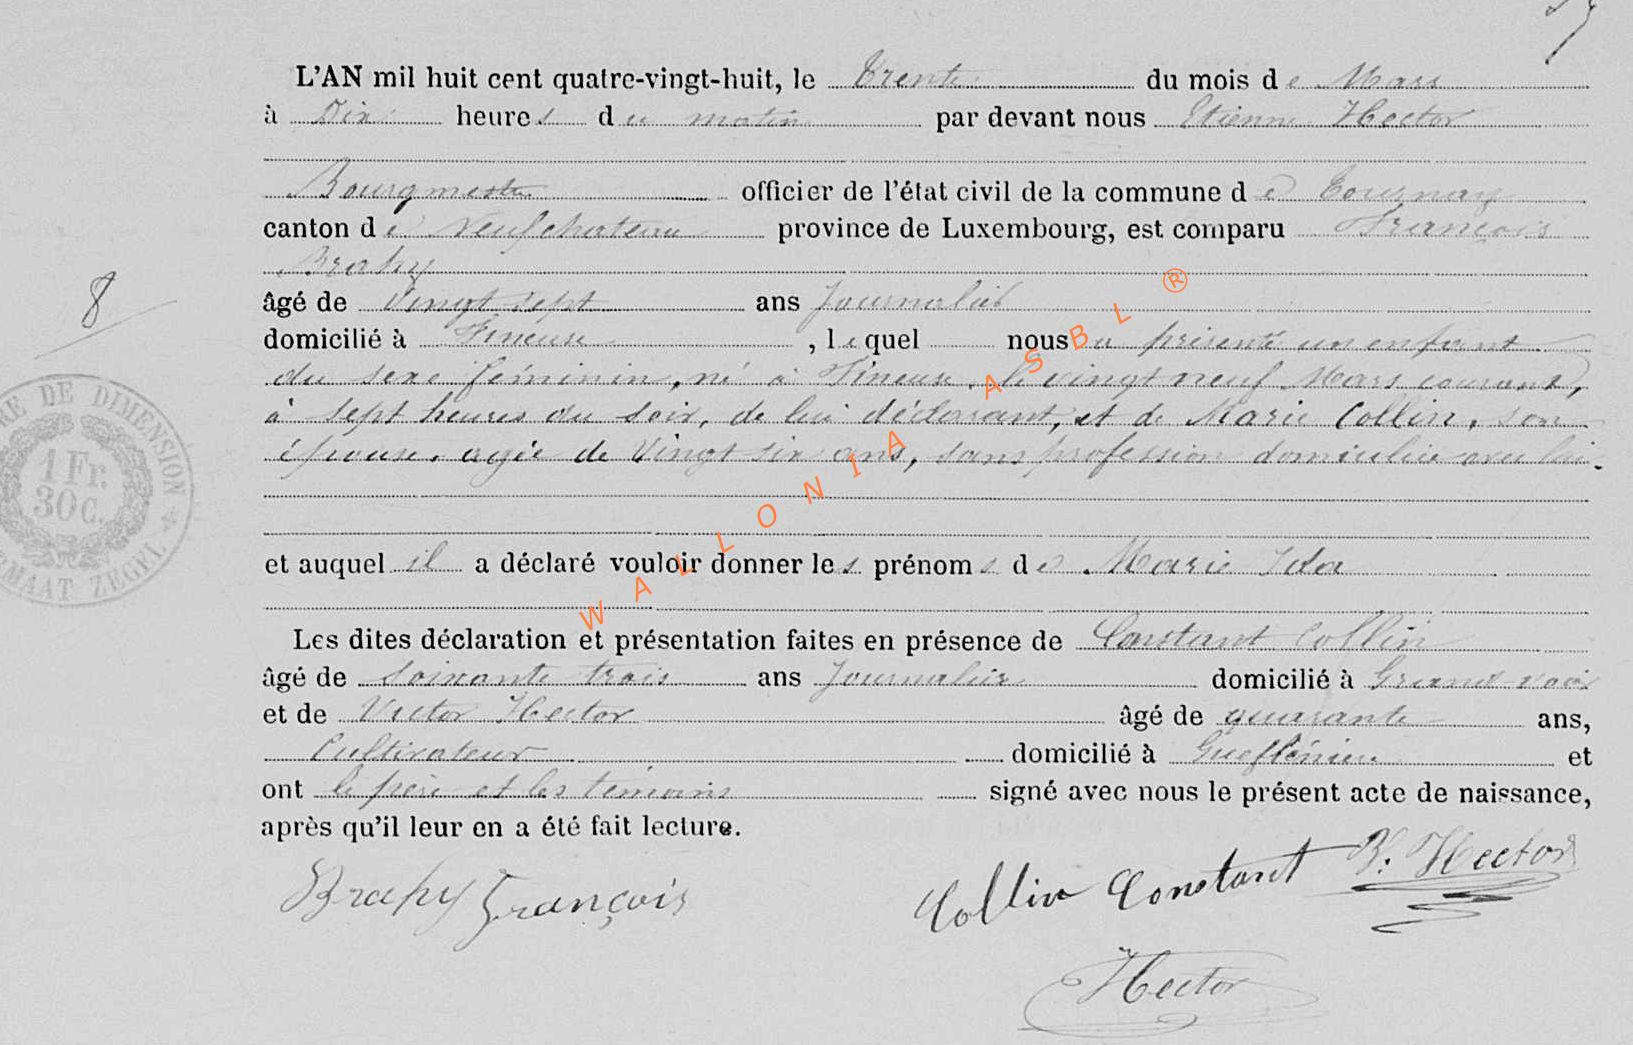 L'AN mil huit cent quatre-vingt-huit, le Trente du mois de Mars
à Dix heures du matin par devant nous Etienne Hector
Bourgmestre officier de l'état civil de la commune de Tournay
canton de Neufchateau province de Luxembourg, est comparu François
Brahy
âgé de vingt sept ans Journalier
domicilié à Fineuse, lequel nous a présenté un enfant
du sexe féminin, né à Fineuse, le vingt neuf Mars courant,
à sept heures du soir, de lui déclarant, et de Marie Collin, son
épouse, agée de Vingt six ans, sans profession domiciliée avec lui.
et auquel il a déclaré vouloir donner les prénoms de Marie Ida
Les dites déclaration et présentation faites en présence de Constant Collin
âgé de soixante trois ans Journalier domicilié à Grandvoir
et de Victor Hector âgé de quarante ans,
Cultivateur domicilié à et
ont le père et les témoins signé avec nous le présent acte de naissance,
après qu'il leur en a été fait lecture.
Brahy François
Collin Constant V. Hector
Hector
8
RE DE DIMENSION
1 Fr.
30 C.
RMAAT ZEGEL
WALLONIA ASBL ®